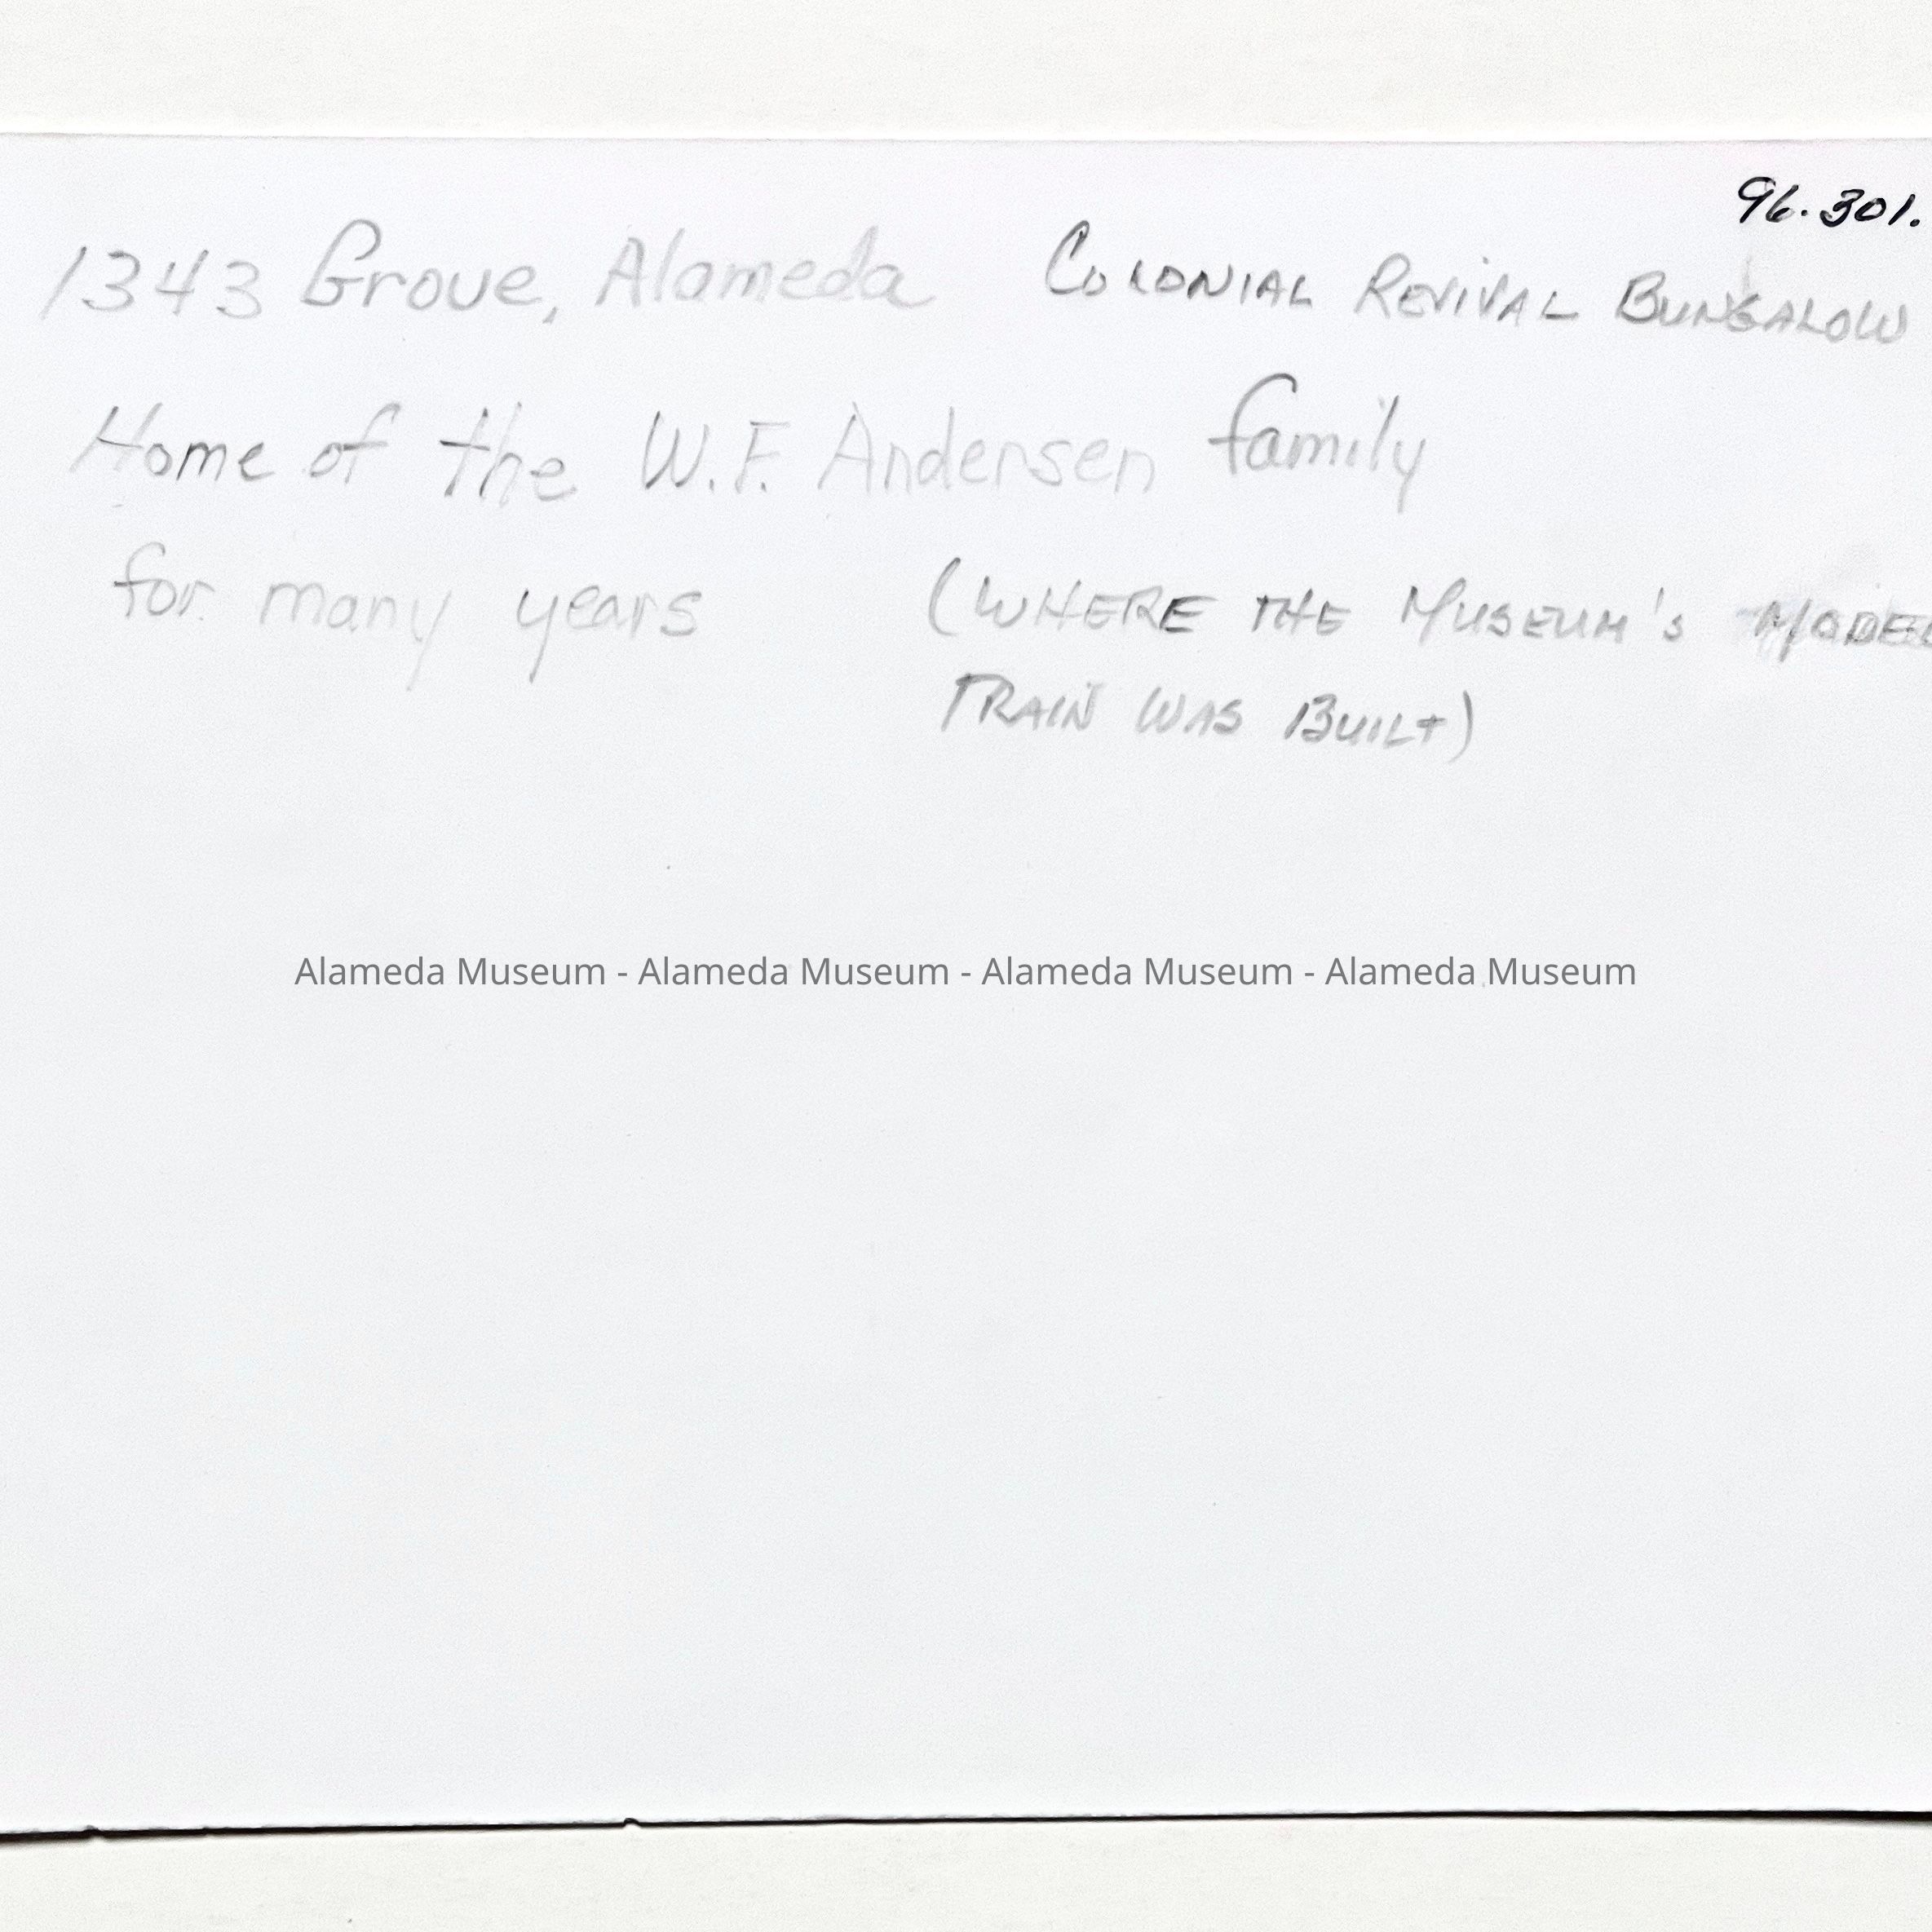 96.301.
1343 Grove, Alameda COLONIAL REVIVAL BUNGALOW
Home of the W.F. Andersen family
for many years (WHERE THE MUSEUM'S MODEL
TRAIN WAS BUILT)
Alameda Museum - Alameda Museum - Alameda Museum - Alameda Museum